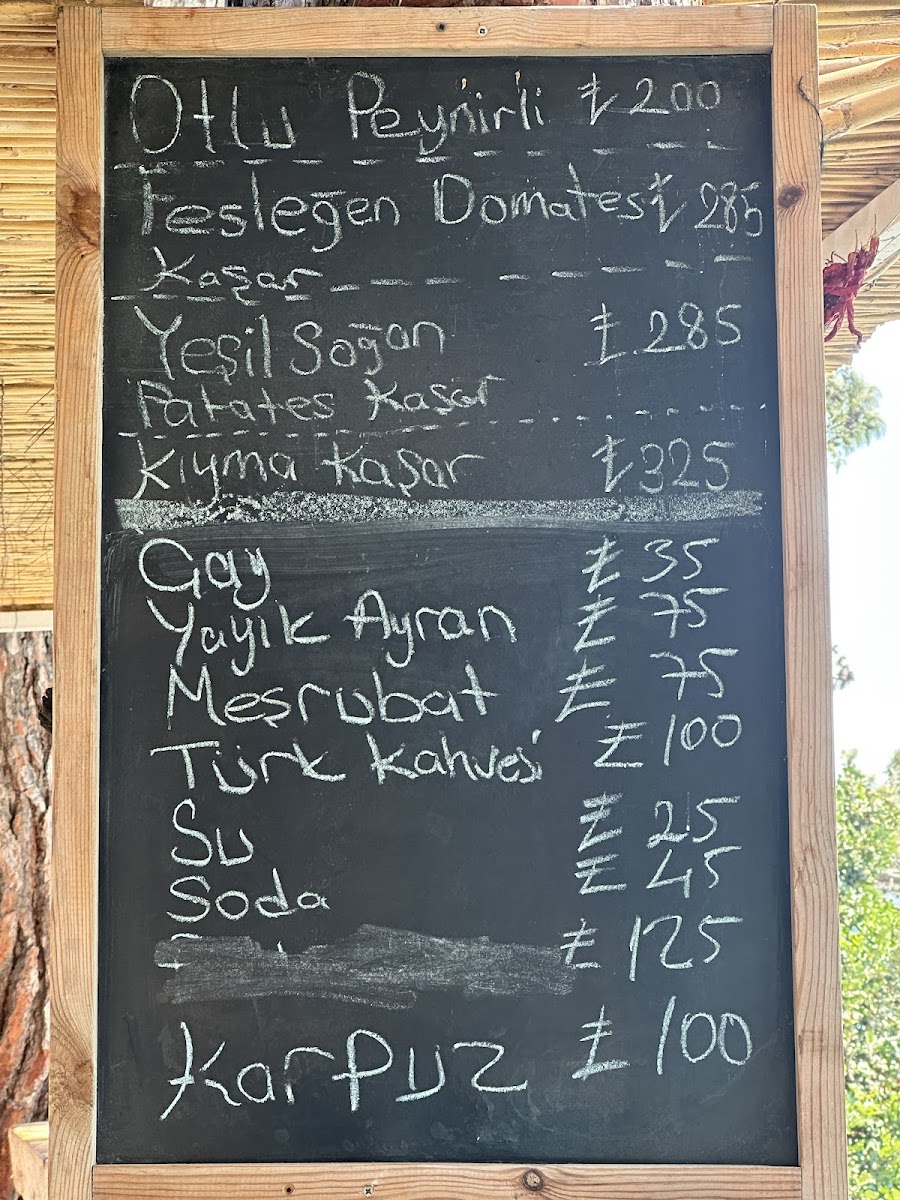 Otlu Peynirli ₺200
Fesleğen Domates ₺285
Kaşar
Yeşil Soğan ₺285
Patates Kaşar
Kıyma Kaşar ₺325
Çay ₺35
Yayık Ayran ₺75
Meşrubat ₺75
Türk Kahvesi ₺100
Su ₺25
Soda ₺45
₺125
Karpuz ₺100